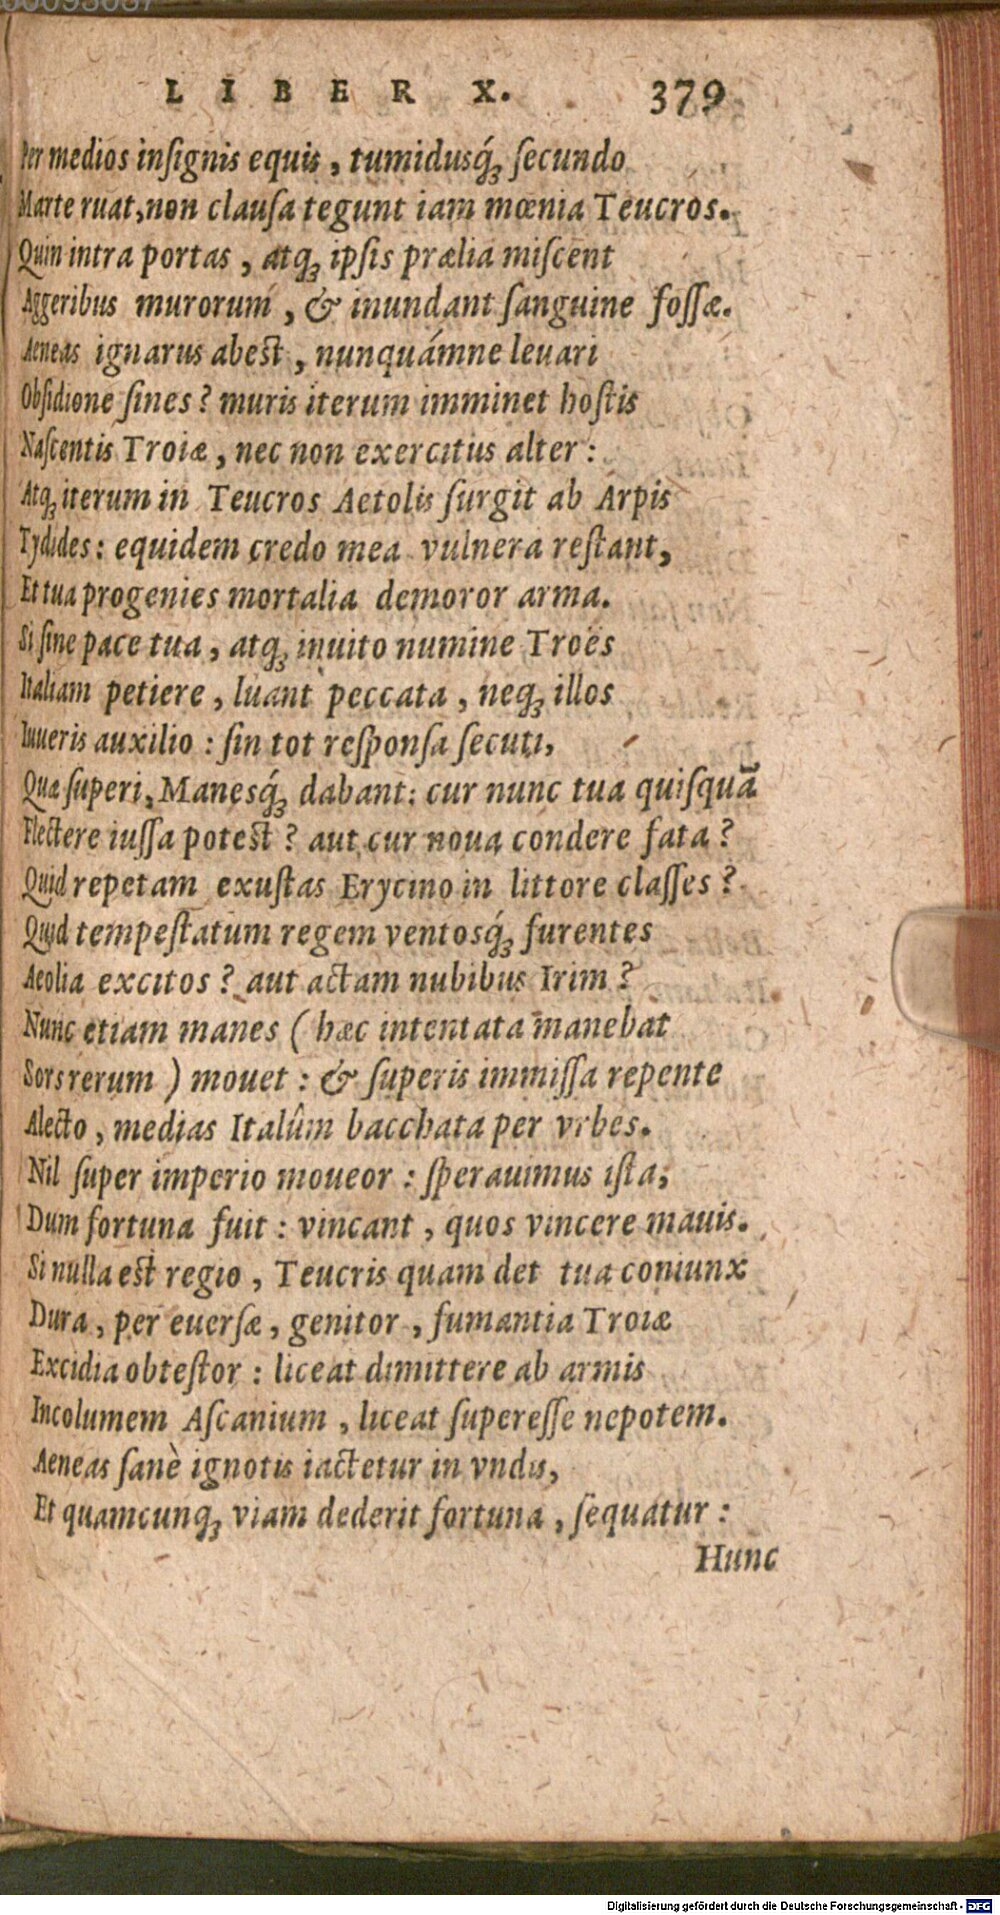 LIBER X. 379
Per medios insignis equis, tumidusq́; secundo
Marte ruat, non clausa tegunt iam mœnia Teucros.
Quin intra portas, atq; ipsis prælia miscent
Aggeribus murorum, & inundant sanguine fossæ.
Aeneas ignarus abest, nunquámne leuari
Obsidione sines? muris iterum imminet hostis
Nascentis Troiæ, nec non exercitus alter:
Atq; iterum in Teucros Aetolis surgit ab Arpis
Tydides: equidem credo mea vulnera restant,
Et tua progenies mortalia demoror arma.
Si sine pace tua, atq; inuito numine Troës
Italiam petiere, luant peccata, neq; illos
Iuueris auxilio: sin tot responsa secuti,
Quæ superi, Manesq́; dabant: cur nunc tua quisquã
Flectere iussa potest? aut cur noua condere fata?
Quid repetam exustas Erycino in littore classes?
Quid tempestatum regem ventosq́; furentes
Aeolia excitos? aut actam nubibus Irim?
Nunc etiam manes (hæc intentata manebat
Sors rerum) mouet: & superis immissa repente
Alecto, medias Italûm bacchata per vrbes.
Nil super imperio moueor: sperauimus ista,
Dum fortuna fuit: vincant, quos vincere mauis.
Si nulla est regio, Teucris quam det tua coniunx
Dura, per euersæ, genitor, fumantia Troiæ
Excidia obtestor: liceat dimittere ab armis
Incolumem Ascanium, liceat superesse nepotem.
Aeneas sanè ignotis iactetur in vndis,
Et quamcunq; viam dederit fortuna, sequatur:
Hunc
Digitalisierung gefördert durch die Deutsche Forschungsgemeinschaft - DFG